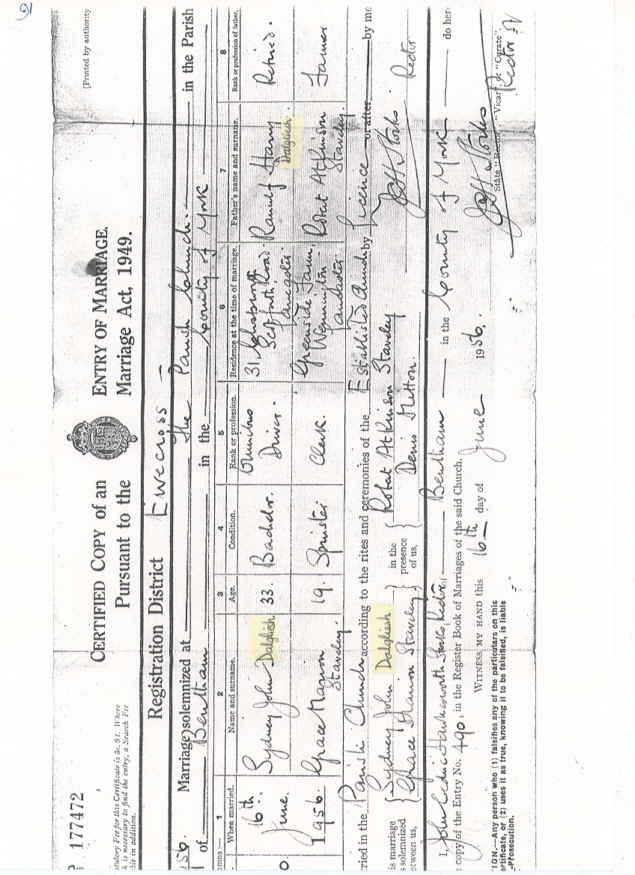 16
P 177472
[Printed by authority
CERTIFIED COPY of an ENTRY OF MARRIAGE.
Pursuant to the Marriage Act, 1949.
tutory Fee for this Certificate is 3s. 9d. Where
is necessary to find the entry, a Search Fee
in addition.
Registration District Ewecross
956. Marriage solemnized at The Parish Church in the Parish
of Bentham in the County of York
1 2 3 4 5 6 7 8
When married. Name and surname. Age. Condition. Rank or profession. Residence at the time of marriage. Father's name and surname. Rank or profession of father.
16th June. 1956 Sydney John Dalgliesh 33. Bachelor. Omnibus Driver. 31 Road. Lancaster Ranulf Harry Dalgliesh. Retired.
Grace Marion Staveley. 19. Spinster Clerk. Greenside Farm, Wennington Lancaster Robert Atkinson Staveley. Farmer
rried in the Parish Church according to the rites and ceremonies of the Established Church by Licence or after by me
is marriage Sydney John Dalgliesh in the Robert Atkinson Staveley
s solemnized Grace Marion Staveley presence Denis Hutton. Rector
etween us, of us,
I, John Rector, Bentham in the County of York do here
copy of the Entry No. 490, in the Register Book of Marriages of the said Church.
WITNESS MY HAND this 16th day of June 1956.
State "Rector," "Vicar," or "Curate". Rector
ION.—Any person who (1) falsifies any of the particulars on this
ertificate, or (2) uses it as true, knowing it to be falsified, is liable
Prosecution.